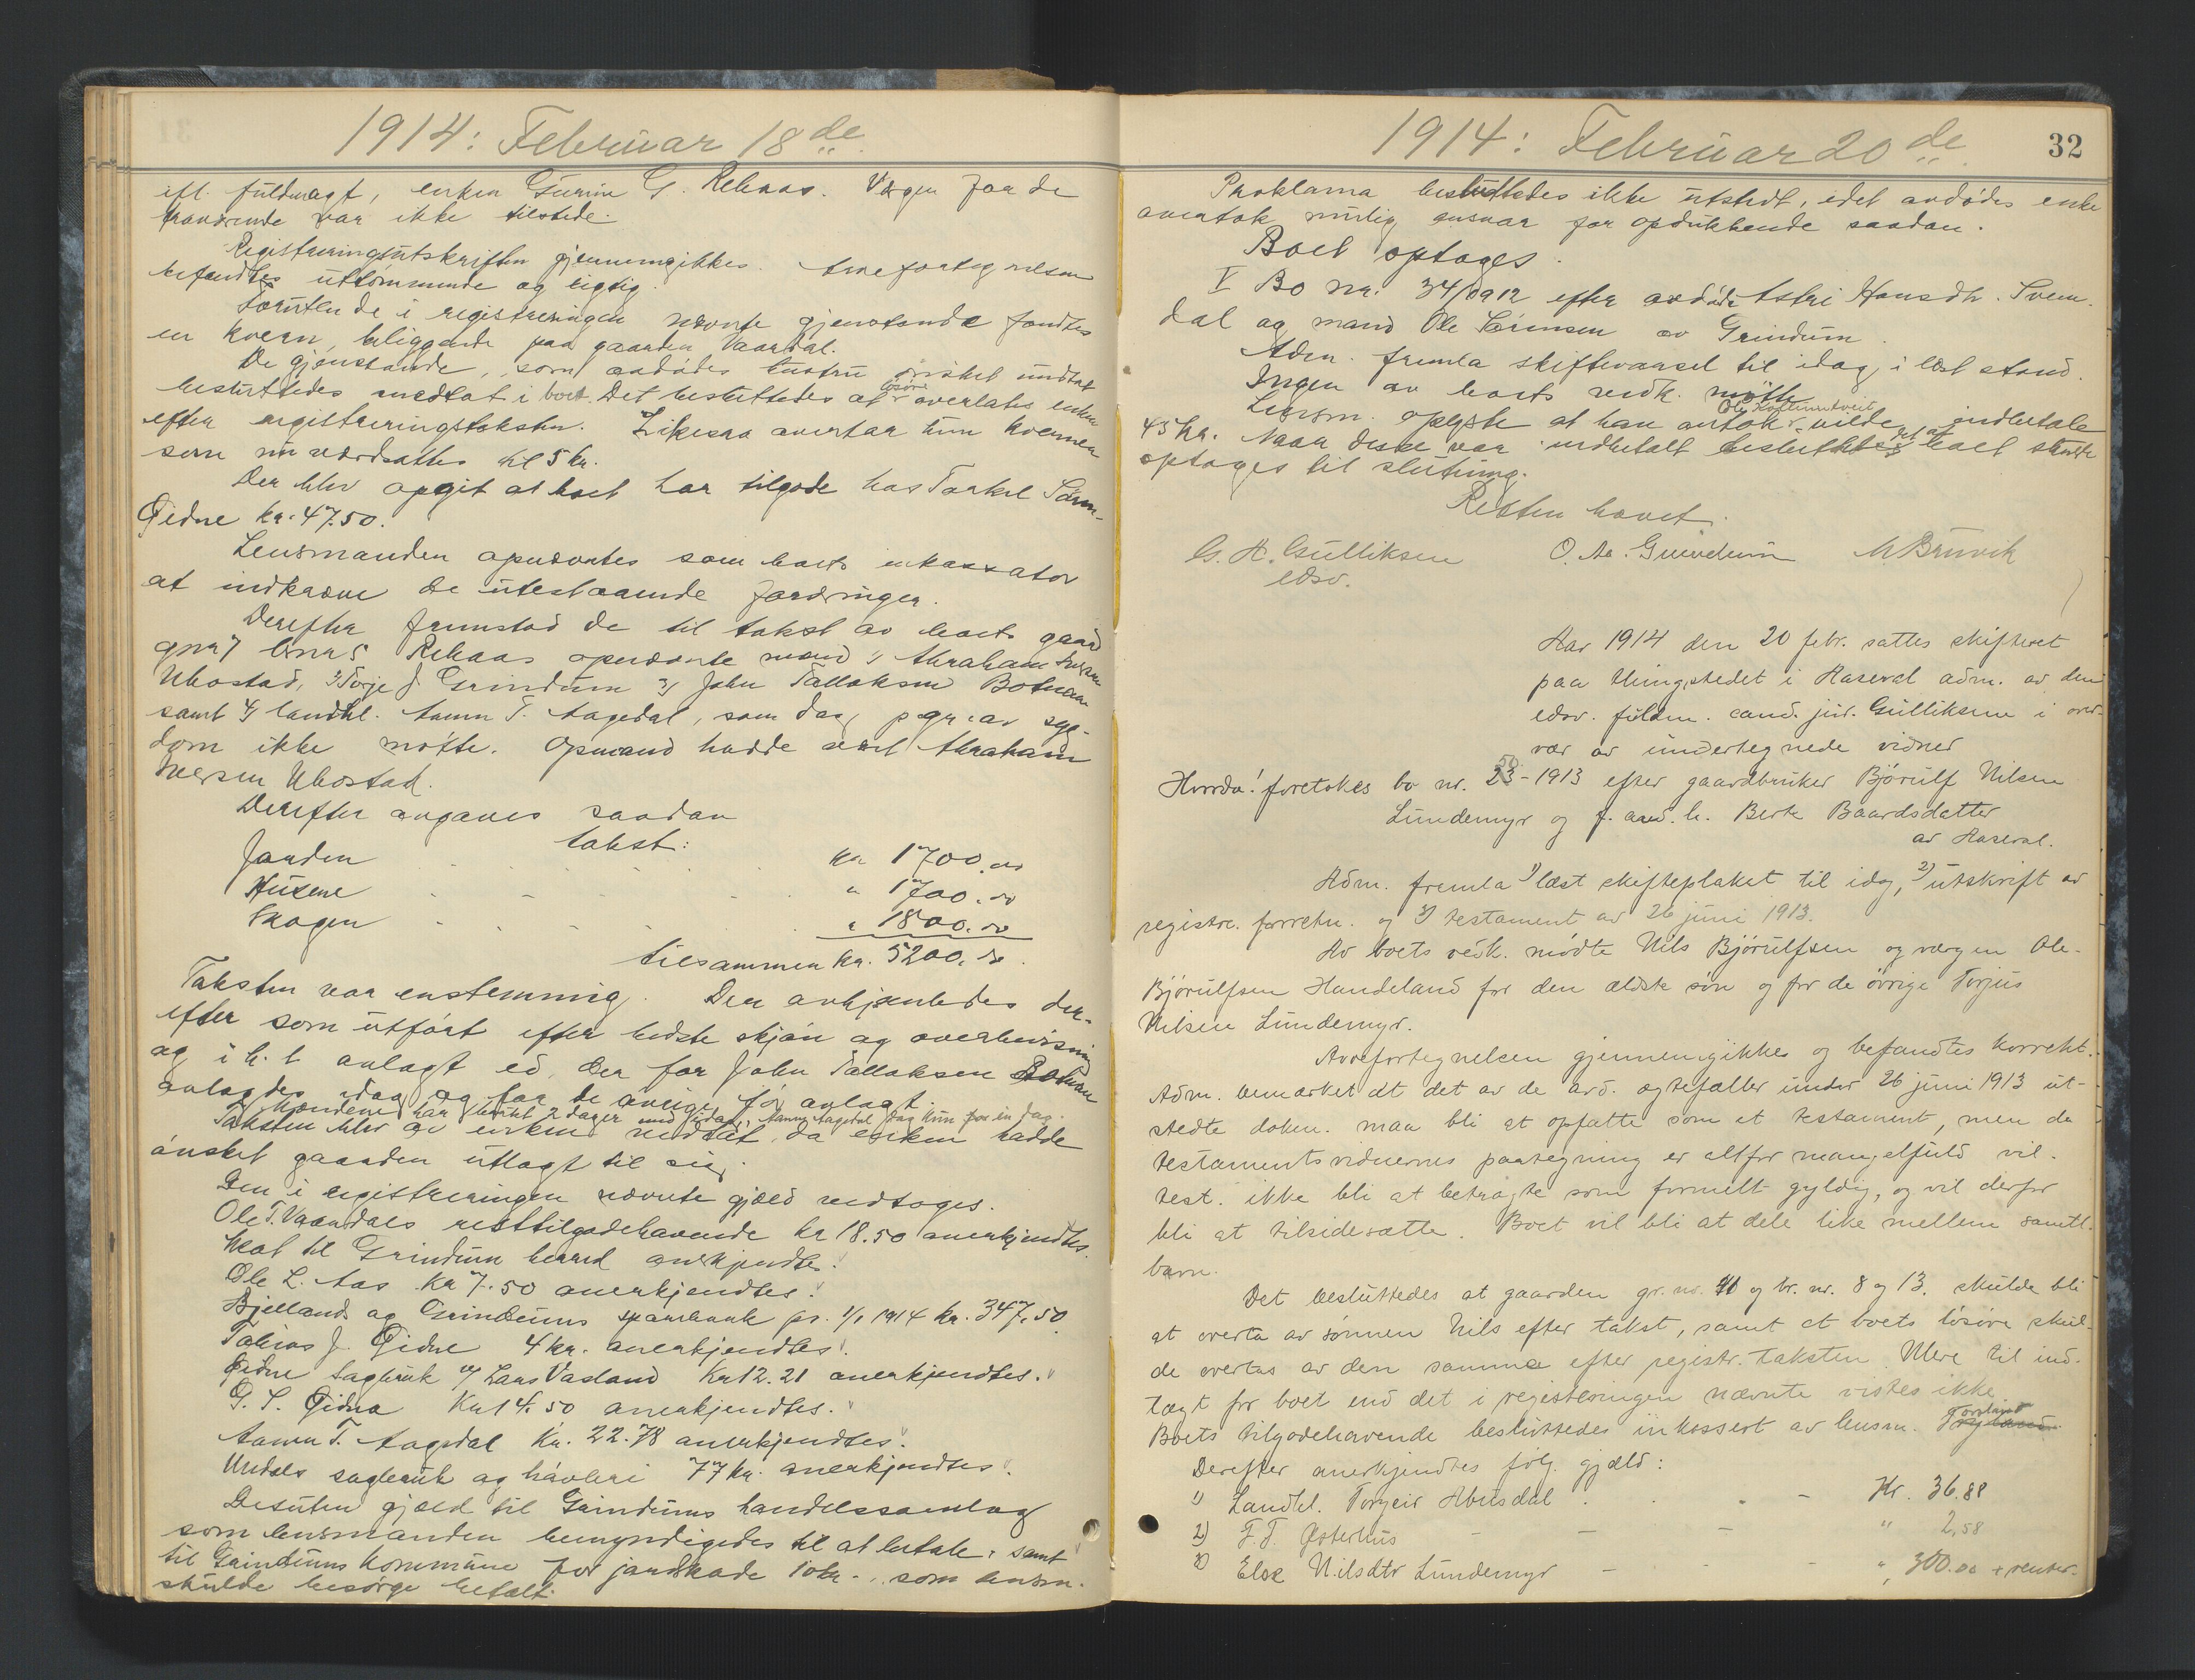 1914: Februar 18de
efl. fuldmagt, enken Gurine G. Rehaas. Vergen for de
fraværende var ikke tilstede.
Registreringsutskriften gjennemgikkes. Arvefortegnelsen
befandtes uttømmende og rigtig.
Foruten de i registreringen nævnte gjenstande fandtes
en kvern, beliggende paa gaarden Vaardal.
De gjenstande, som avdødes hustru ønsket undtat
besluttedes medtat i boet. Det besluttedes at løsøre overlates enken
efter registreringstaksten. Likesaa overtar hun kvernen
som nu værdsattes til 5 kr.
Der blev opgit at boet har tilgode hos Tarkel Søren-
Øidne kr. 47.50.
Lensmanden opnævntes som boets inkassator
at indkræve de utestaaende fordringer.
Derefter fremstod de til takst av boets gaard
gnr 7 bnr 5 Rehaas opnævnte mænd 1) Abraham Iversen
Ubostad, 2) Torje J. Grindum 3) John Tallaksen Botnan
samt 4) landhl. Aamn T. Aagedal, som dog paa gr. av syg-
dom ikke møtte. Opmand hadde været Abraham
Iversen Ubostad.
Derefter avgaves saadan
takst:
Jorden kr 1700.00
Husene " 1700.00
Skogen " 1800.00
tilsammen kr. 5200.00
Taksten var enstemmig. Den avhjemledes der-
efter som utført efter bedste skjøn og overbevisning
og i h. t. avlagt ed, der for John Tallaksen Botnan
avlagdes idag og for de øvrige før avlagt.
Mændene har brukt 2 dager med idag, Aamn Aagedal dog kun for en dag.
Taksten blev av enken vedtat, da enken hadde
ønsket gaarden utlagt til sig.
Den i registreringen nævnte gjæld vedtoges.
Ole T. Vaardals resttilgodehavende kr 18.50 anerkjendtes.
Skat til Grindum herred anerkjendtes.
Ole L. Aas kr 7.50 anerkjendtes.
Bjelland og Grindums sparebank pr. 1/1 1914 kr. 347.50
Tobias J. Øidne 4 kr. anerkjendtes.
Øidne sagbruk v/ Lars Vasland Kr 12.21 anerkjendtes.
G. S. Øidna Kr 14.50 anerkjendtes.
Aamn T. Aagedal Kr. 22.78 anerkjendtes.
Undals sagbruk og høvleri 77 kr. anerkjendtes.
Desuten gjæld til Grindums handelssamlag
som lensmanden bemyndigedes til at betale, samt
til Grindums kommune for jordskade 10 kr. som lensm.
skulde besørge betalt.
1914: Februar 20de
32
Proklama besluttedes ikke utstedt, idet avdødes enke
overtok mulig ansvar for opdukkende saadan.
Boet optages.
V Bo nr. 34/1912 efter avdøde Astri Hansdtr. Svein-
dal og mand Ole Sørensen av Grindum
Adm. fremla skiftevarsel til idag, i læst stand.
Ingen av boets vedk. møtte.
Lensm. oplyste at han antok Ole vilde indbetale
45 kr. Naar disse var indbetalt besluttedes at boet skulde
optages til slutning.
Retten hævet.
G. H. Gulliksen O. Aa. Grindum M Bruvik
edsv.
Aar 1914 den 20 febr. sattes skifteret
paa thingstedet i Aaseral adm. av den
edsv. fuldm. cand. jur. Gulliksen i over-
vær av undertegnede vidner
Hvorda! foretokes bo nr. 23-1913 efter gaardbruker Bjørulf Nilsen
Lundemyr og f. avd. h. Berte Baardsdatter
av Aaseral.
Adm. fremla 1) læst skifteplakat til idag, 2) utskrift av
registr. forretn. og 3) testament av 26 juni 1913.
Av boets vedk. mødte Nils Bjørulfsen og vergen Ole
Bjørulfsen Handeland for den ældste søn og for de øvrige Torjus
Nilsen Lundemyr.
Arvefortegnelsen gjennemgikkes og befandtes korrekt.
Adm. bemærket at det av de avd. egtefæller under 26 juni 1913 ut-
stedte dokm. maa bli at opfatte som et testament, men da
testamentsvidnernes paategning er altfor mangelfuld vil
test. ikke bli at betragte som formelt gyldig, og vil derfor
bli at tilsidesætte. Boet vil bli at dele like mellem samtl.
barn.
Det besluttedes at gaarden gr. nr. 11 og br. nr. 8 og 13. skulde bli
at overta av sønnen Nils efter takst, samt at boets løsøre skul-
de overtas av den samme efter registr. taksten. Mere til ind-
tægt for boet end det i registreringen nævnte vistes ikke.
Boets tilgodehavende besluttedes inkassert av lensm. Torsland
Derefter anerkjendtes følg. gjæld:
1) Landhl. Torgeir Abusdal Kr. 36.88
2) F. T. Østerhus " 2,58
3) Else Nilsdtr Lundemyr " 300.00 + renter.